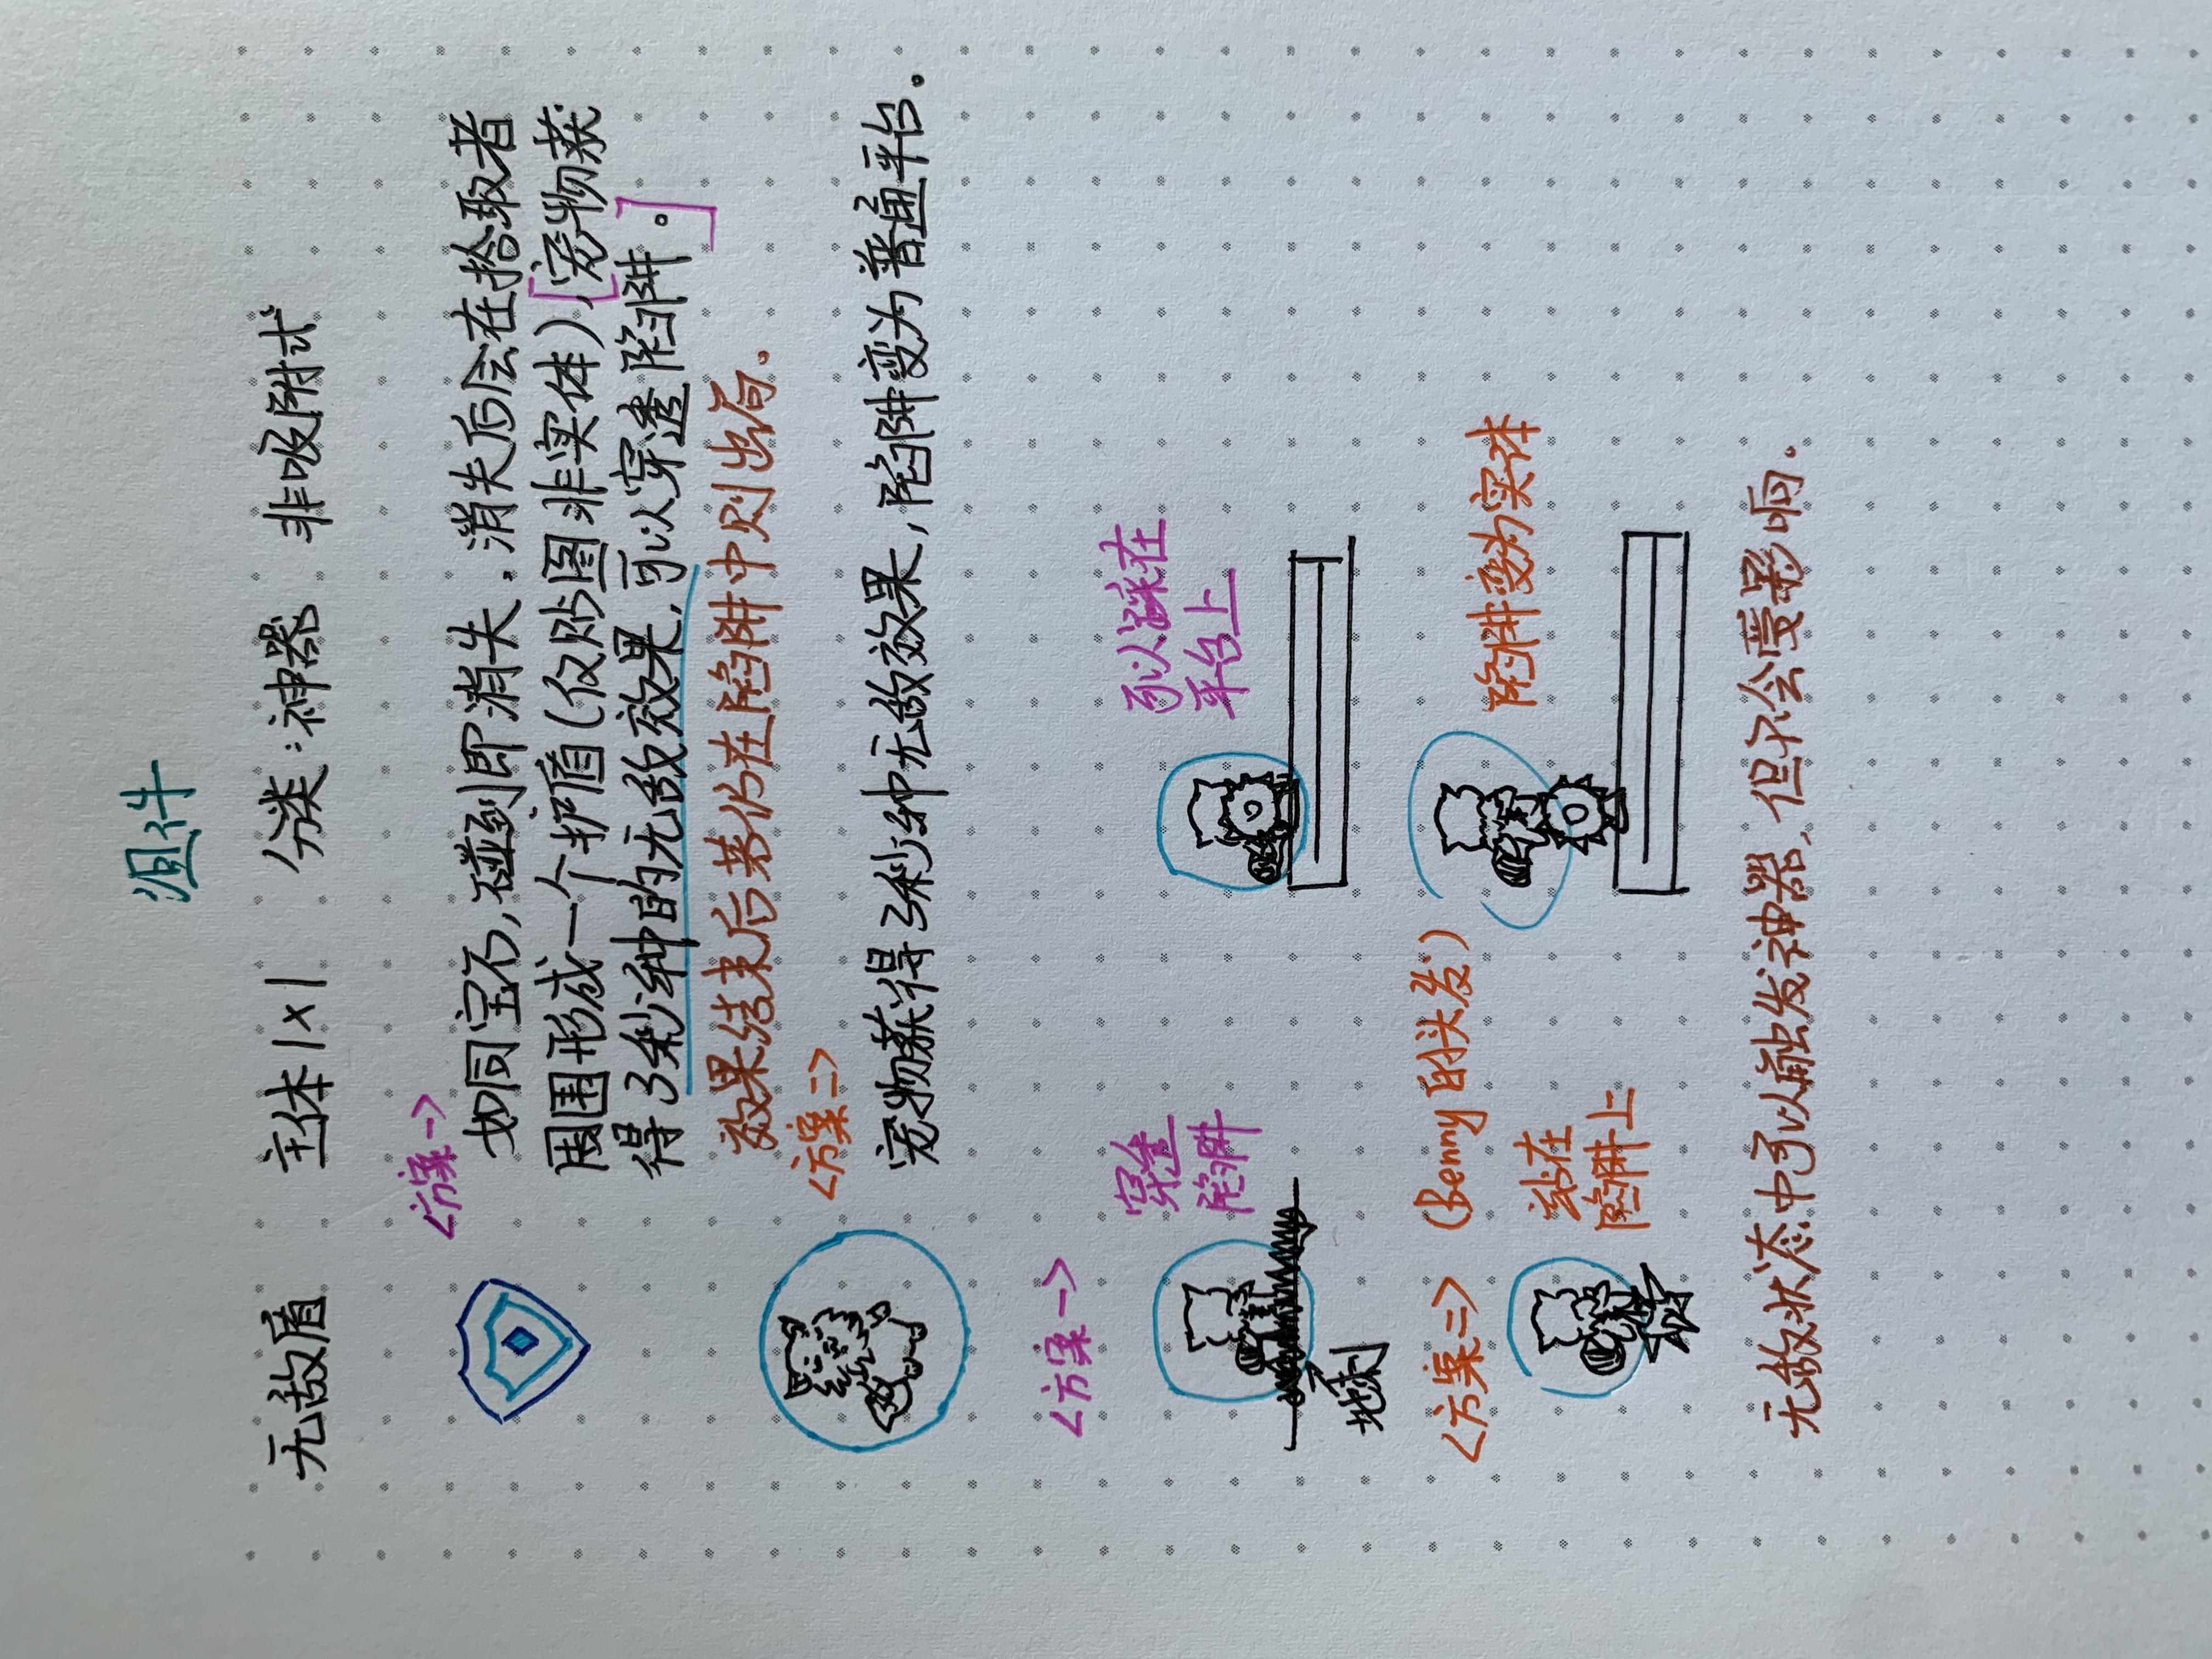 组件
无敌盾 主体1×1 分类:神器 非吸附式
<方案一>
如同宝石,碰到即消失.消失后会在拾取者
周围形成一个护盾(仅贴图非实体),[宠物获
得3秒钟的无敌效果,可以穿透陷阱。]
效果结束后若仍在陷阱中则出局.
<方案二>
宠物获得3秒钟无敌效果,陷阱变为普通平台.
<方案一>
穿过
陷阱
可以踩在
平台上
地刺
<方案二>
(Benny的头发)
站在
陷阱上
陷阱变为实体
无敌状态中可以触发神器,但不会受影响.